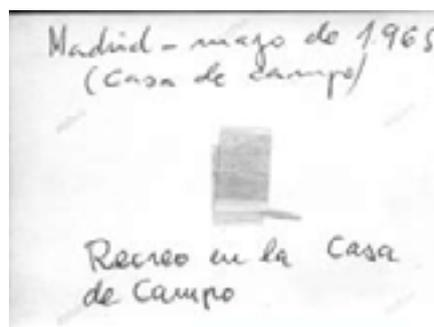 Madrid - mayo de 1965
(Casa de campo)
Recreo en la Casa
de Campo